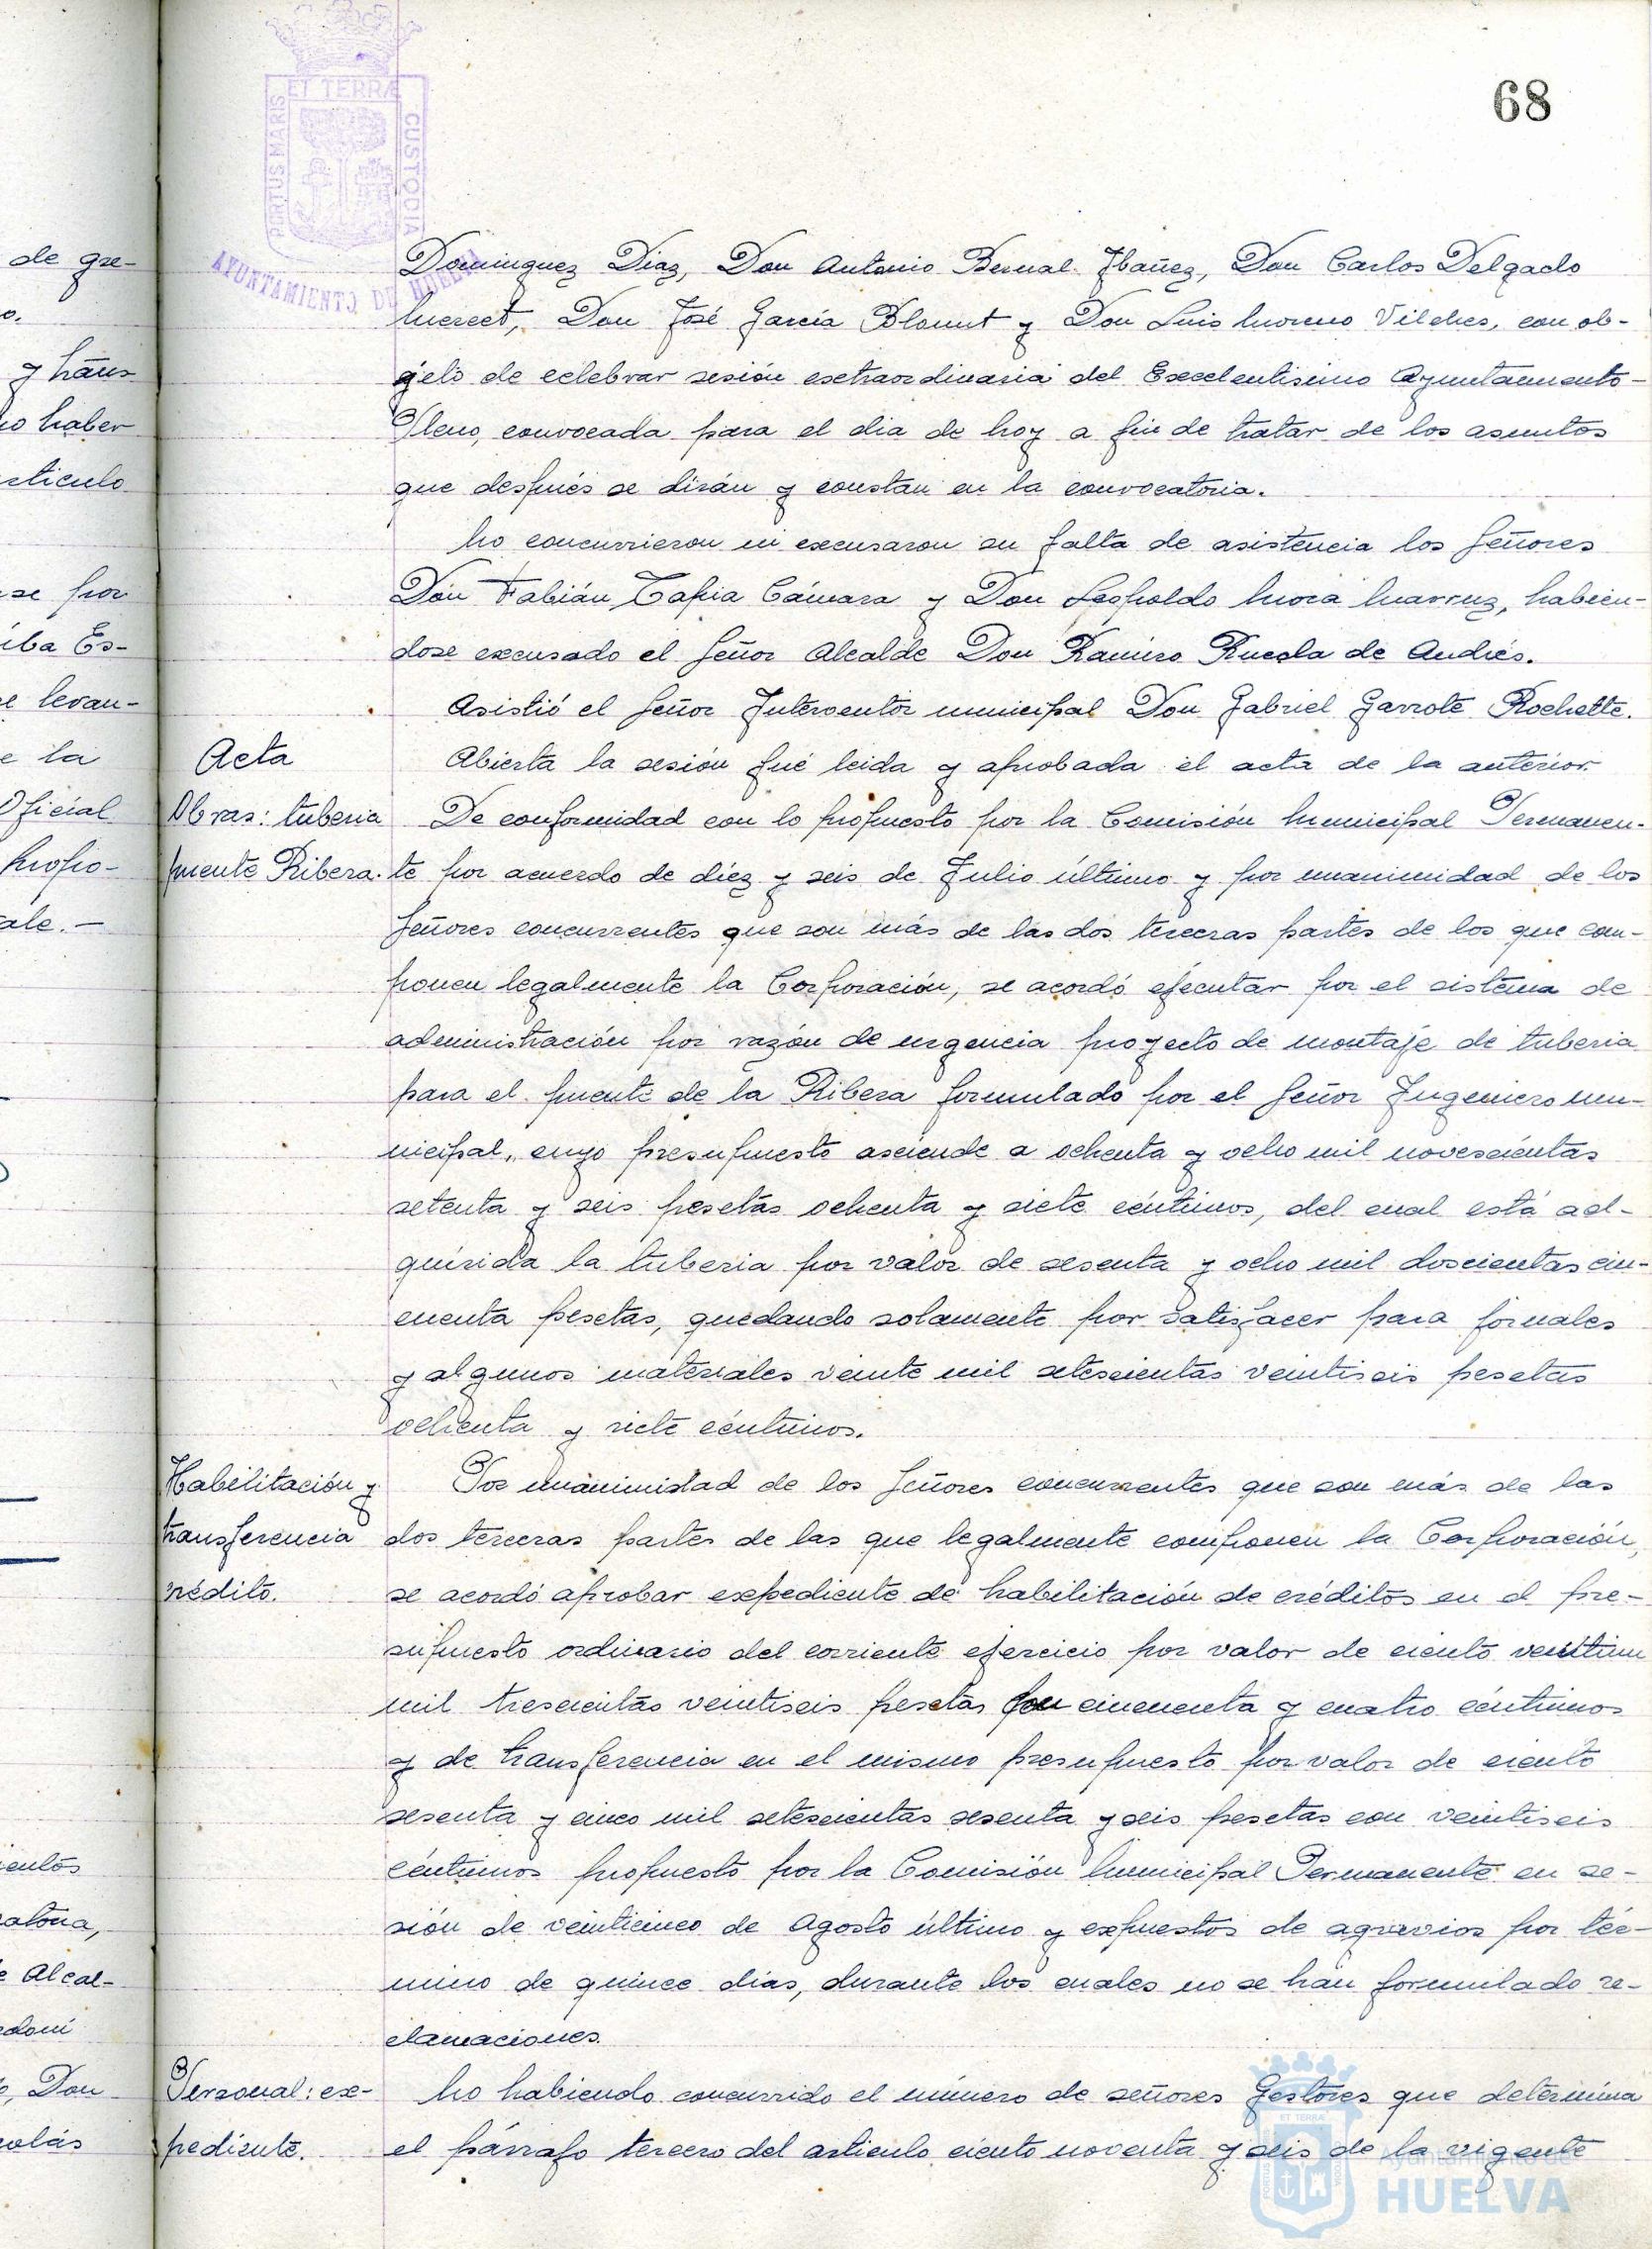 68
PORTUS MARIS ET TERRÆ CUSTODIA
AYUNTAMIENTO DE HUELVA
de gre-
o.
y trans
no haber
articulo
se por
iba Es-
se levan-
e la
Oficial
propo-
ale.-
ientos
atoria,
e Alcal-
, Don
colás
Dominguez Diaz, Don Antonio Bernal Ibañez, Don Carlos Delgado
Merect, Don José García Blount y Don Luis Moreno Vilches, con ob-
jeto de celebrar sesión esctraordinaria del Escelentisimo Ayuntamiento-
Pleno, convocada para el dia de hoy a fin de tratar de los asuntos
que después se dirán y constan en la convocatoria.
No concurrieron ni excusaron su falta de asistencia los Señores
Don Fabián Tapia Cámara y Don Leopoldo Mora Marruz, habien-
dose excusado el Señor Alcalde Don Ramiro Rueda de Andrés.
Asistió el Señor Interventor municipal Don Gabriel Garrote Rochette.
Acta
Abierta la sesión fué leida y aprobada el acta de la anterior.
Obras: tuberia
puente Ribera.
De conformidad con lo propuesto por la Comisión Municipal Permanen-
te por acuerdo de diez y seis de Julio último y por unanimidad de los
Señores concurrentes que son más de las dos terceras partes de los que com-
ponen legalmente la Corporación, se acordó ejecutar por el sistema de
administración por razón de urgencia proyecto de montaje de tuberia
para el puente de la Ribera formulado por el Señor Ingeniero mu-
nicipal, cuyo presupuesto asciende a ochenta y ocho mil novescientas
setenta y seis pesetas ochenta y siete céntimos, del cual está ad-
quirida la tuberia por valor de sesenta y ocho mil doscientas cin-
cuenta pesetas, quedando solamente por satisfacer para jornales
y algunos materiales veinte mil setescientas veintiseis pesetas
ochenta y siete céntimos.
Habilitación y
transferencia
crédito.
Por unanimidad de los Señores concurrentes que son más de las
dos terceras partes de las que legalmente componen la Corporación,
se acordó aprobar expediente de habilitación de créditos en el pre-
supuesto ordinario del corriente ejercicio por valor de ciento veintiun
mil trescientas veintiseis pesetas con cincuenta y cuatro céntimos
y de transferencia en el mismo presupuesto por valor de ciento
sesenta y cinco mil setescientas sesenta y seis pesetas con veintiseis
céntimos propuesto por la Comisión Municipal Permanente en se-
sión de veinticinco de Agosto último y expuestos de agravios por tér-
mino de quince dias, durante los cuales no se han formulado re-
clamaciones.
Personal: ex-
pediente.
No habiendo concurrido el número de señores Gestores que determina
el párrafo tercero del articulo ciento noventa y seis de la vigente
Ayuntamiento de
HUELVA